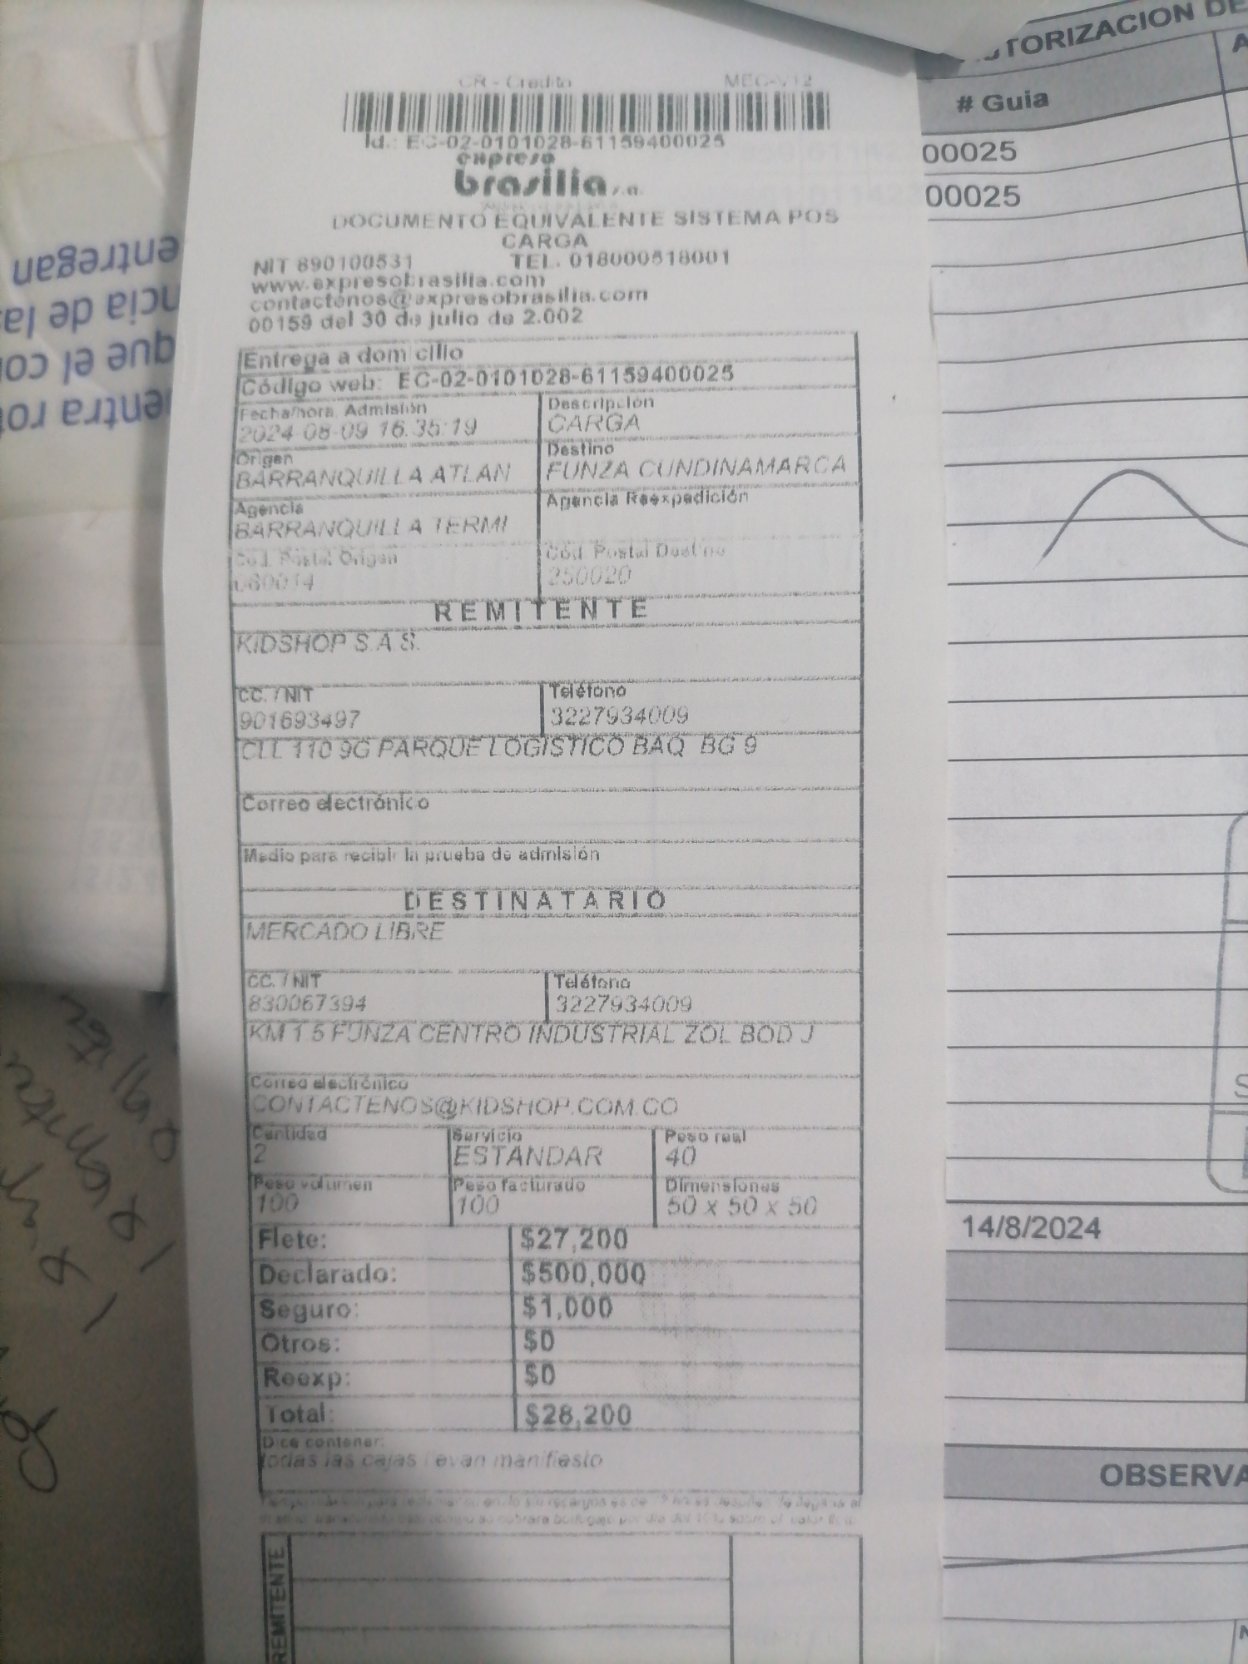 CR - Credito MEC-V12
Id.: EC-02-0101028-61159400025
expreso
brasilia s.a.
DOCUMENTO EQUIVALENTE SISTEMA POS
CARGA
NIT 890100531 TEL. 018000518001
www.expresobrasilia.com
contactenos@expresobrasilia.com
00159 del 30 de julio de 2.002
Entrega a domicilio
Código web: EC-02-0101028-61159400025
Fecha/hora Admisión Descripción
2024-08-09 16:35:19 CARGA
Origen Destino
BARRANQUILLA ATLAN FUNZA CUNDINAMARCA
Agencia Agencia Reexpedición
BARRANQUILLA TERMI
Cód. Postal Origen Cód. Postal Destino
080014 250020
REMITENTE
KIDSHOP S.A.S.
CC. / NIT Teléfono
901693497 3227934009
CLL 110 9G PARQUE LOGISTICO BAQ BG 9
Correo electrónico
Medio para recibir la prueba de admisión
DESTINATARIO
MERCADO LIBRE
CC. / NIT Teléfono
830067394 3227934009
KM 1.5 FUNZA CENTRO INDUSTRIAL ZOL BOD J
Correo electrónico
CONTACTENOS@KIDSHOP.COM.CO
Cantidad Servicio Peso real
2 ESTANDAR 40
Peso volumen Peso facturado Dimensiones
100 100 50 x 50 x 50
Flete: $27,200
Declarado: $500,000
Seguro: $1,000
Otros: $0
Reexp: $0
Total: $28,200
Dice contener:
todas las cajas llevan manifiesto
REMITENTE
TORIZACION DE
# Guia
00025
00025
14/8/2024
OBSERVA
entregan
ncia de la
que el co
entra ro